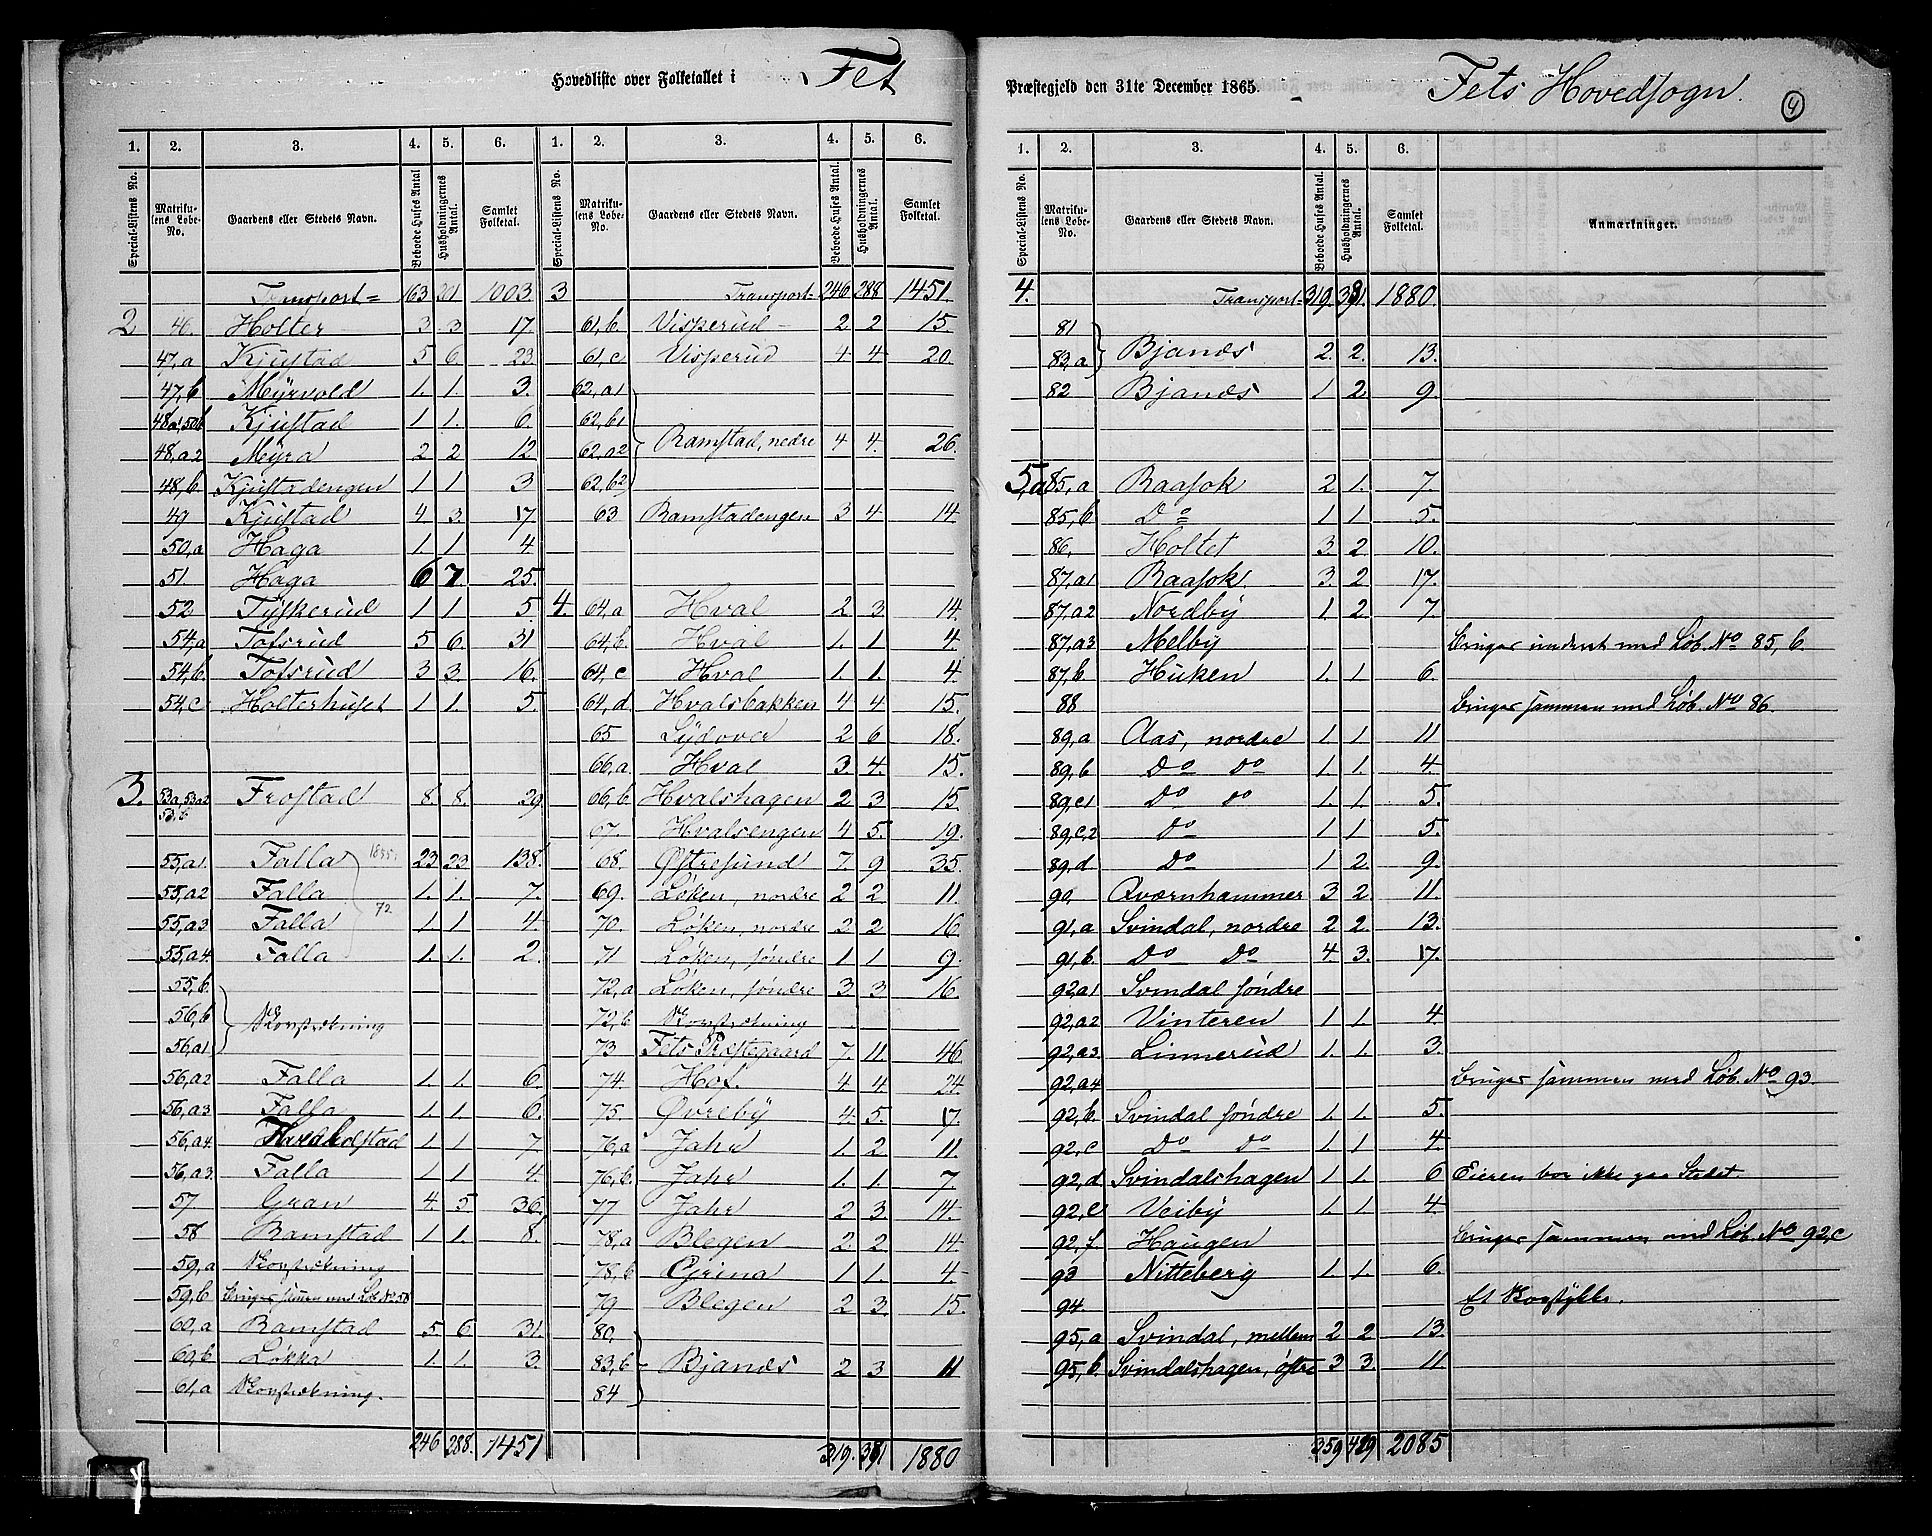 Hovedliste over Folketallet i Fet
Præstegjeld den 31te December 1865. Fets Hovedsogn. 4
1. 2. 3. 4. 5. 6. 1. 2. 3. 4. 5. 6.
Special-Listens No. Matrikulens Løbe-No. Gaardens eller Stedets Navn. Beboede Huses Antal Husholdningernes Antal. Samlet Folketal. Special-Listens No. Matrikulens Løbe-No. Gaardens eller Stedets Navn. Beboede Huses Antal. Husholdningernes Antal. Samlet Folketal.
Transport= 163 201 1003
2 46. Holter 3 3 17
47,a Kjustad 5 6. 23
47,b Myrvold 1. 1. 3.
48a1,50b Kjustad 1 1. 6.
48,a2 Myra 2 2 12
48,b Kjustadengen 1 1 3
49 Kjustad 4. 3. 17
50,a Haga 1. 1 4
51. Haga 6 7. 25.
52 Tyskerud 1 1 5.
54,a Tofsrud 5 6. 31
54,b Tofsrud 3 3. 16.
54,c Holterhuset 1 1. 5.
3. 53a1,53a2 53,b Frostad 8. 8. 29
55,a1 Falla 23 23 138.
55,a2 Falla 1. 1. 7.
72.
55,a3 Falla 1 1 4.
55,a4. Falla 1. 1. 2.
55,b.
56,b Skovstrækning
56,a1
56,a2 Falla 1. 1. 6.
56,a3 Falla 1 1. 6.
56,a4. 1 1. 7.
56,a3. Falla 1 1. 4.
57. Gran 4. 5 36.
58 Ramstad 1 1. 8.
59,a Skovstrækning
59,b bruges samen med Løb No 58
60,a Ramstad 5. 6. 31.
60,b Løkka 1. 1. 3.
61,a Skovstrækning.
246 288. 1451
3 Transport= 246 288 1451.
61,b Visperud 2 2 15.
61,c Visperud 4 4 20.
62,a1
62,b1
62,a2 Ramstad, nedre 4 4. 26.
62,b2
63 Ramstadengen 3 4 14.
4. 64,a Hval 2 3 14.
64,b. Hval 1. 1 4.
64,c Hval 1. 1 4.
64,d Hvalsbakken 4 4 15.
65 Lydover 2 6 18.
66,a Hval 3. 4. 15.
66,b Hvalshagen 2 3 15.
67. Hvalsengen 4 5. 19.
68. Østresund 7. 9 35.
69. Løken, nordre 2 2 11.
70. Løken, nordre 3. 2 16.
71 Løken, søndre 1 1 9.
72,a Løken, søndre 3. 3 16.
72,b Skovstrækning
73 Fets Præstegaard 7. 11. 46
74. Hof. 4 4 24.
75. Øvreby 4. 5. 17.
76,a Jahr 1. 2 11.
76,b. Jahr 1. 1 7.
77 Jahr 2 3. 14.
78,a Blegen 2. 2 14.
78,b Gjrina 1 1. 4.
79 Blegen 2 3. 15.
80.
83,b Bjanes 2 3. 11
84
319. 391 1880
1. 2. 3. 4. 5. 6.
Special-Listens No. Matrikulens Løbe-No. Gaardens eller Stedets Navn. Beboede Huses Antal. Husholdningernes Antal. Samlet Folketal. Anmærkninger.
4. Transport= 319. 391. 1880.
81
83,a Bjanes 2. 2. 13.
82 Bjanes 1 2. 9.
5,a 85,a Raasok 2 1. 7.
85,b Do 1 1 5.
86. Holtet 3. 2 10.
87,a1 Raasok 3. 2 17.
87,a2 Nordby 1. 2 7.
87,a3 Melby bruges underet med Løb. No 85, b.
87,b Huken 1. 1 6.
88 bruges sammen med Løb. No 86.
89,a Aas, nordre 1. 1. 11
89,b Do do 1 1. 4.
89,c1 Do do 1. 1. 5.
89,c2 Do 1 1 5.
89,d Do 1 2. 9.
90. Qværnhammer 3 2. 11.
91,a Svindal, nordre 2 2. 13.
91,b. Do Do 4. 3. 17.
92,a1 Svindal søndre
92,a2 Vinteren 1 1. 4.
92,a3. Linnerud 1. 1. 3.
92,a4 bruges sammen med Løb. No 93.
92,b. Svindal søndre 1. 1. 5.
92,c Do Do 1. 1 4.
92,d Svindalshagen 1 1. 6 Eieren bor ikke paa Stedet.
92,e Veiby 1. 1 4.
92,f. Haugen bruges sammen med Løb. No 92,c
93 Nitteberg 1. 1. 6.
94. Et Skovstykke.
95,a Svindal, mellem 2 2 13.
95,b. Svindalshagen, østre 3 3. 11.
359 429 2085